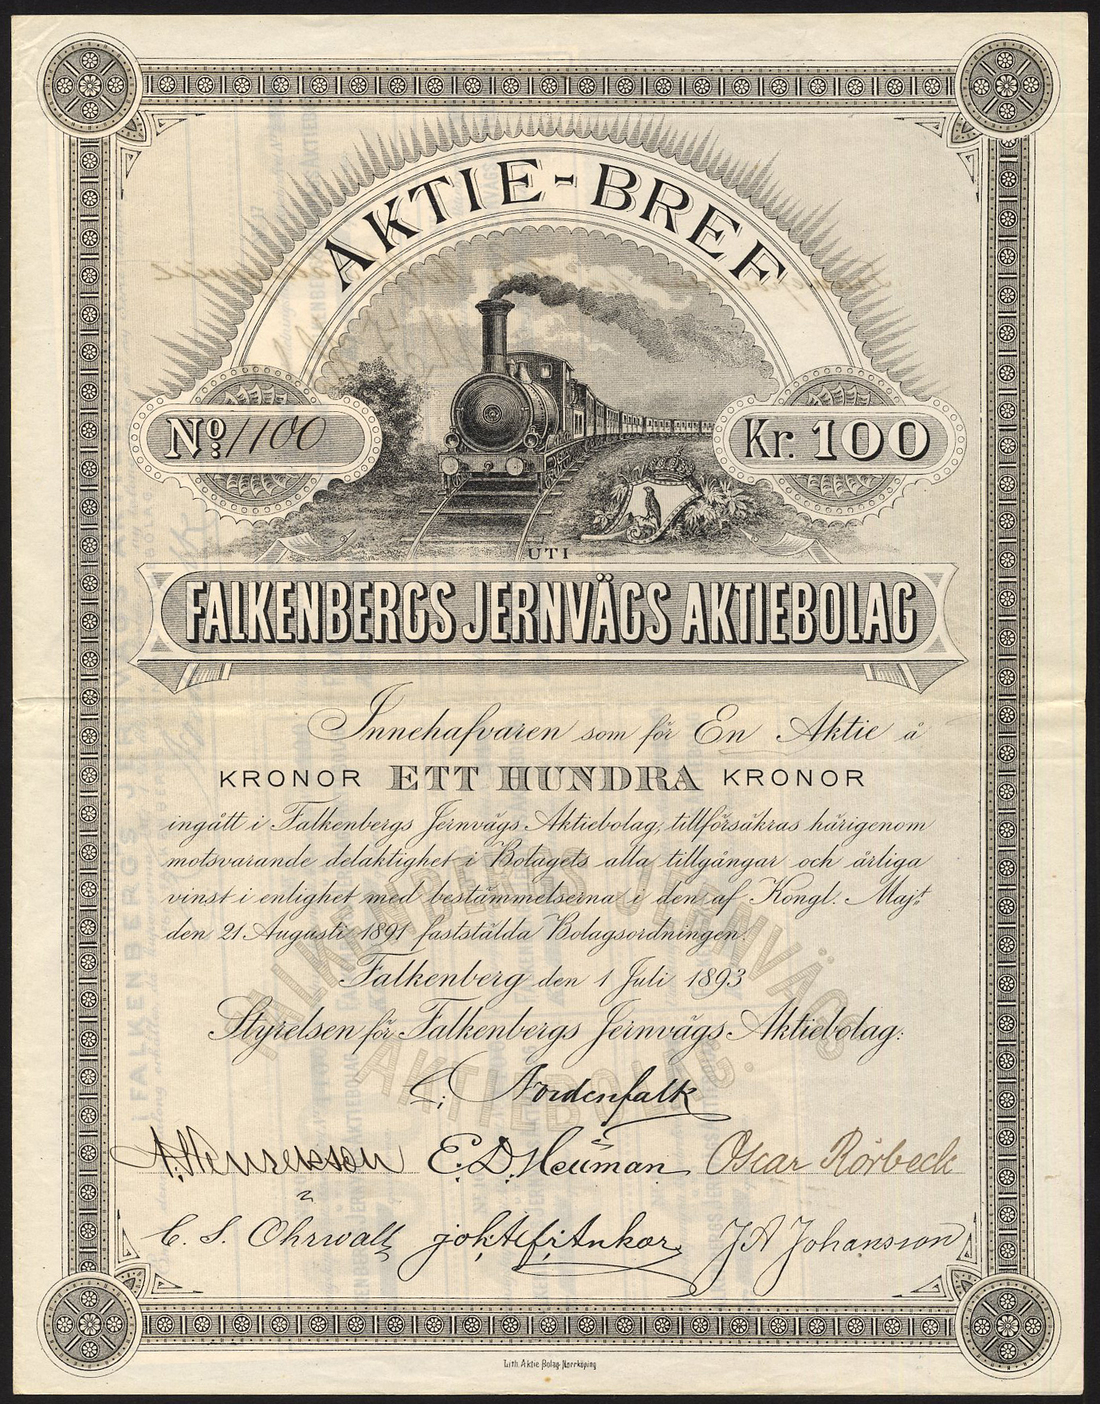 AKTIE-BREF
No: 1100
Kr. 100
UTI
FALKENBERGS JERNVÄGS AKTIEBOLAG
Innehafvaren som för En Aktie å
KRONOR ETT HUNDRA KRONOR
ingått i Falkenbergs Jernvägs Aktiebolag, tillförsäkras härigenom
motsvarande delaktighet i Bolagets alla tillgångar och årliga
vinst i enlighet med bestämmelserna i den af Kongl. Maj:t
den 21 Augusti 1891 faststälda Bolagsordningen.
Falkenberg den 1 Juli 1893
Styrelsen för Falkenbergs Jernvägs Aktiebolag:
Nordenfalk
A. Henriksson E. D. Heüman Oscar Rörbeck
C. S. Öhrwall J A Johansson
FALKENBERGS JERNVÄGS
AKTIEBOLAG.
Lith. Aktie Bolag Norrköping